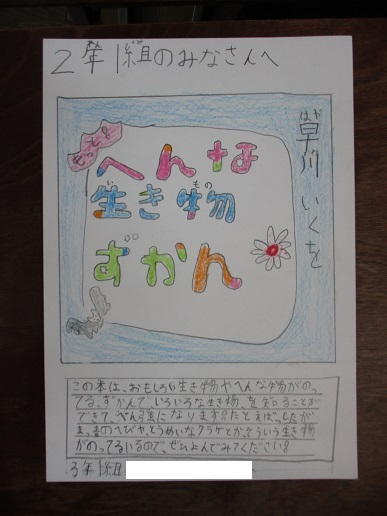 2年1組のみなさんへ
はや
早川 いくを
もっと!
へんな
い もの
生き物
ずかん
この本は、おもしろい生き物やへんな物がの
ってる、ずかんでいろいろな生き物、を知ることが
できて、べん強になります!たとえば、したが
まっ青のへびや、とうめいなクラゲとか、そういう生き物
がのっているので、ぜひよんでみてください!
3年1組